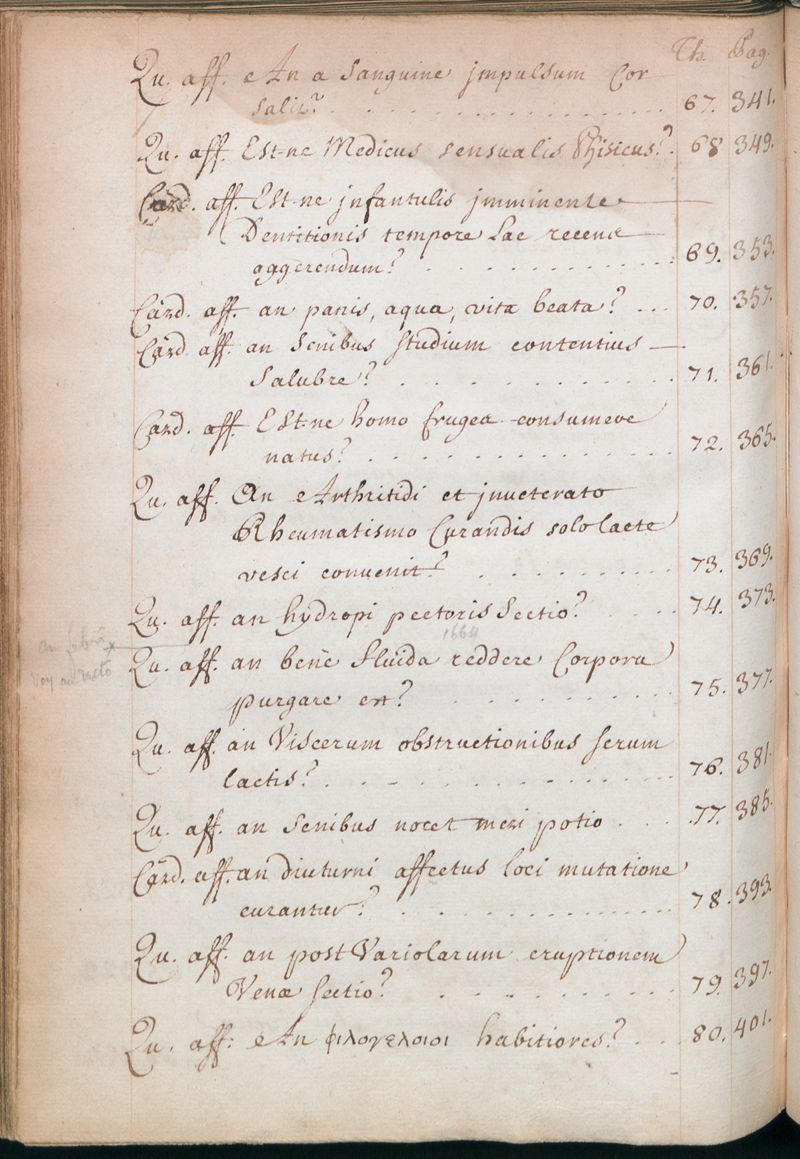 Th. Pag.
Qu. aff. An a Sanguine jmpulsum Cor
Salit? 67. 341.
Qu. aff. Est-ne Medicus sensualis Phisicus? 68 349.
Card. aff. Est-ne jnfantulis jmminente
Dentitionis tempore Lac recens
aggerendum? 69. 353.
Card. aff. an panis, aqua, vita beata? 70. 357.
Card aff. an Senibus Studium contentius
Salubre? 71. 361.
Card. aff. Est-ne homo fruges consumere
natus? 72. 365.
Qu. aff. An Arthritidi et jnveterato
Rheumatismo Curandis solo lacte
vesci convenit? 73. 369.
Qu. aff. an hydropi pectoris Sectio? 74. 373.
1664
Qu. aff. an bene fluida reddere Corpora
purgare est? 75. 377.
Qu. aff. an Viscerum obstructionibus serum
lactis? 76. 381.
Qu. aff. an Senibus nocet meri potio 77. 385.
Card. aff. an diuturni affectus loci mutatione
curantur? 78. 393.
Qu. aff. an post Variolarum eruptionem
Venæ sectio? 79. 397.
Qu. aff: An φιλογελοιοι habitiores? 80. 401.